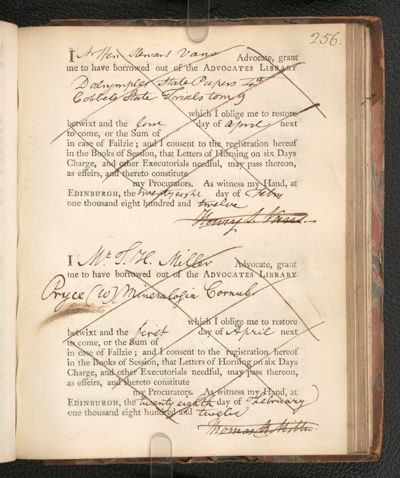 256.
I Mr Hen Stewart Vans Advocate, grant
me to have borrowed out of the ADVOCATES LIBRARY
Dalrymples State Papers
Cobbets State Trials tom 9
which I oblige me to restore
betwixt and the day of April next
to come, or the Sum of
in case of Failzie; and I consent to the registration hereof
in the Books of Session, that Letters of Horning on six Days
Charge, and other Executorials needful, may pass thereon,
as effeirs, and thereto constitute
my Procurators. As witness my Hand, at
EDINBURGH, the twenty eight day of Feby
one thousand eight hundred and twelve
Henry S. Vans.
I Mr T. H. Miller Advocate, grant
me to have borrowed out of the ADVOCATES LIBRARY
Pryce (W) Mineralogia Cornub.
which I oblige me to restore
betwixt and the first day of April next
to come, or the Sum of
in case of Failzie; and I consent to the registration hereof
in the Books of Session, that Letters of Horning on six Days
Charge, and other Executorials needful, may pass thereon,
as effeirs, and thereto constitute
my Procurators. As witness my Hand, at
EDINBURGH, the twenty eighth day of February
one thousand eight hundred and twelve
Thomas H. Miller